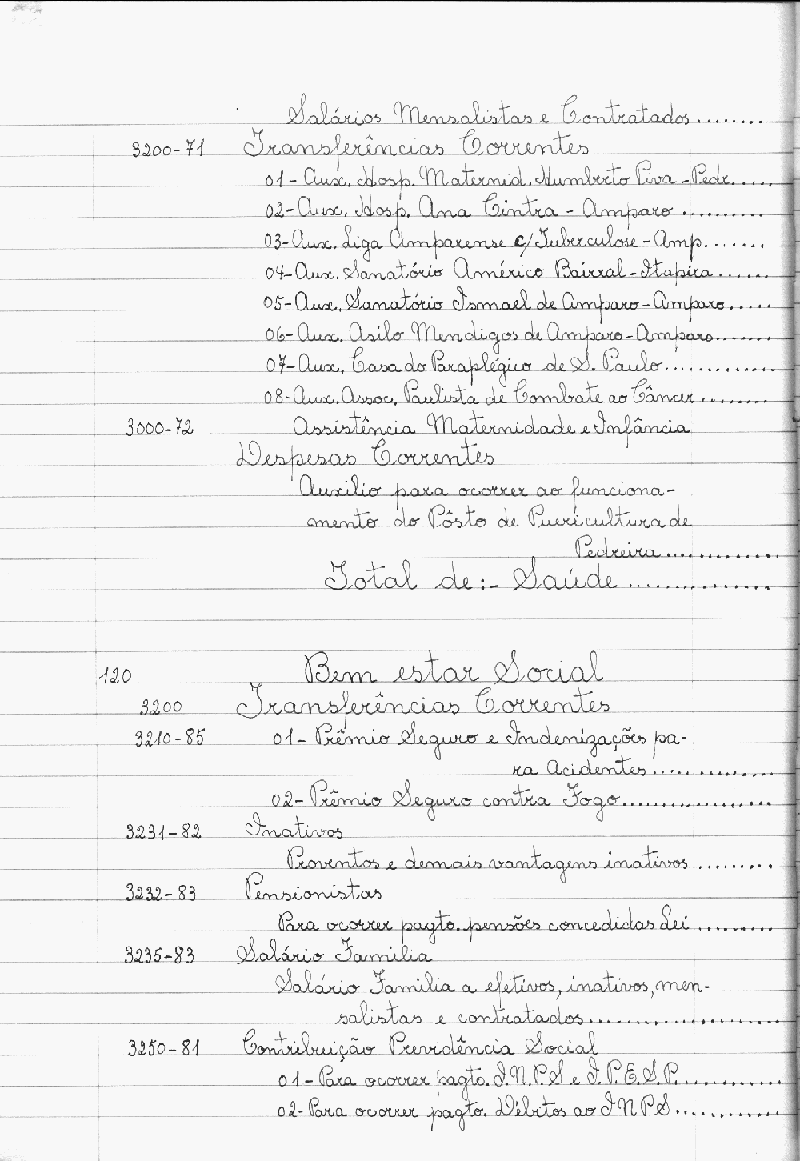 Salários Mensalistas e Contratados........
3200-71 Transferências Correntes
01-Aux. Hosp. Maternid. Humberto Piva-Pedr.....
02-Aux. Hosp. Ana Cintra-Amparo..........
03-Aux. Liga Amparense c/Tuberculose-Amp.......
04-Aux. Sanatório Américo Bairral-Itapira......
05-Aux. Sanatório Ismael de Amparo-Amparo.....
06-Aux. Asilo Mendigos de Amparo-Amparo......
07-Aux. Casa do Paraplégico de S. Paulo.............
08-Aux. Assoc. Paulista de Combate ao Câncer........
3000-72 Assistência Maternidade e Infância
Despesas Correntes
Auxílio para ocorrer ao funciona-
mento do Pôsto de Puericultura de
Pedreira............
Total de:- Saúde..............
120 Bem estar Social
3200 Transferências Correntes
3210-85 01-Prêmio Seguro e Indenizações pa-
ra Acidentes.............
02-Prêmio Seguro contra Fogo................
3231-82 Inativos
Proventos e demais vantagens inativos........
3232-83 Pensionistas
Para ocorrer pagto. pensões concedidas Lei........
3235-83 Salário Familia
Salário Familia a efetivos, inativos, men-
salistas e contratados....................
3250-81 Contribuição Previdência Social
01-Para ocorrer pagto. I.N.P.S e I.P.E.S.P...........
02-Para ocorrer pagto. Débitos ao I N P S...........